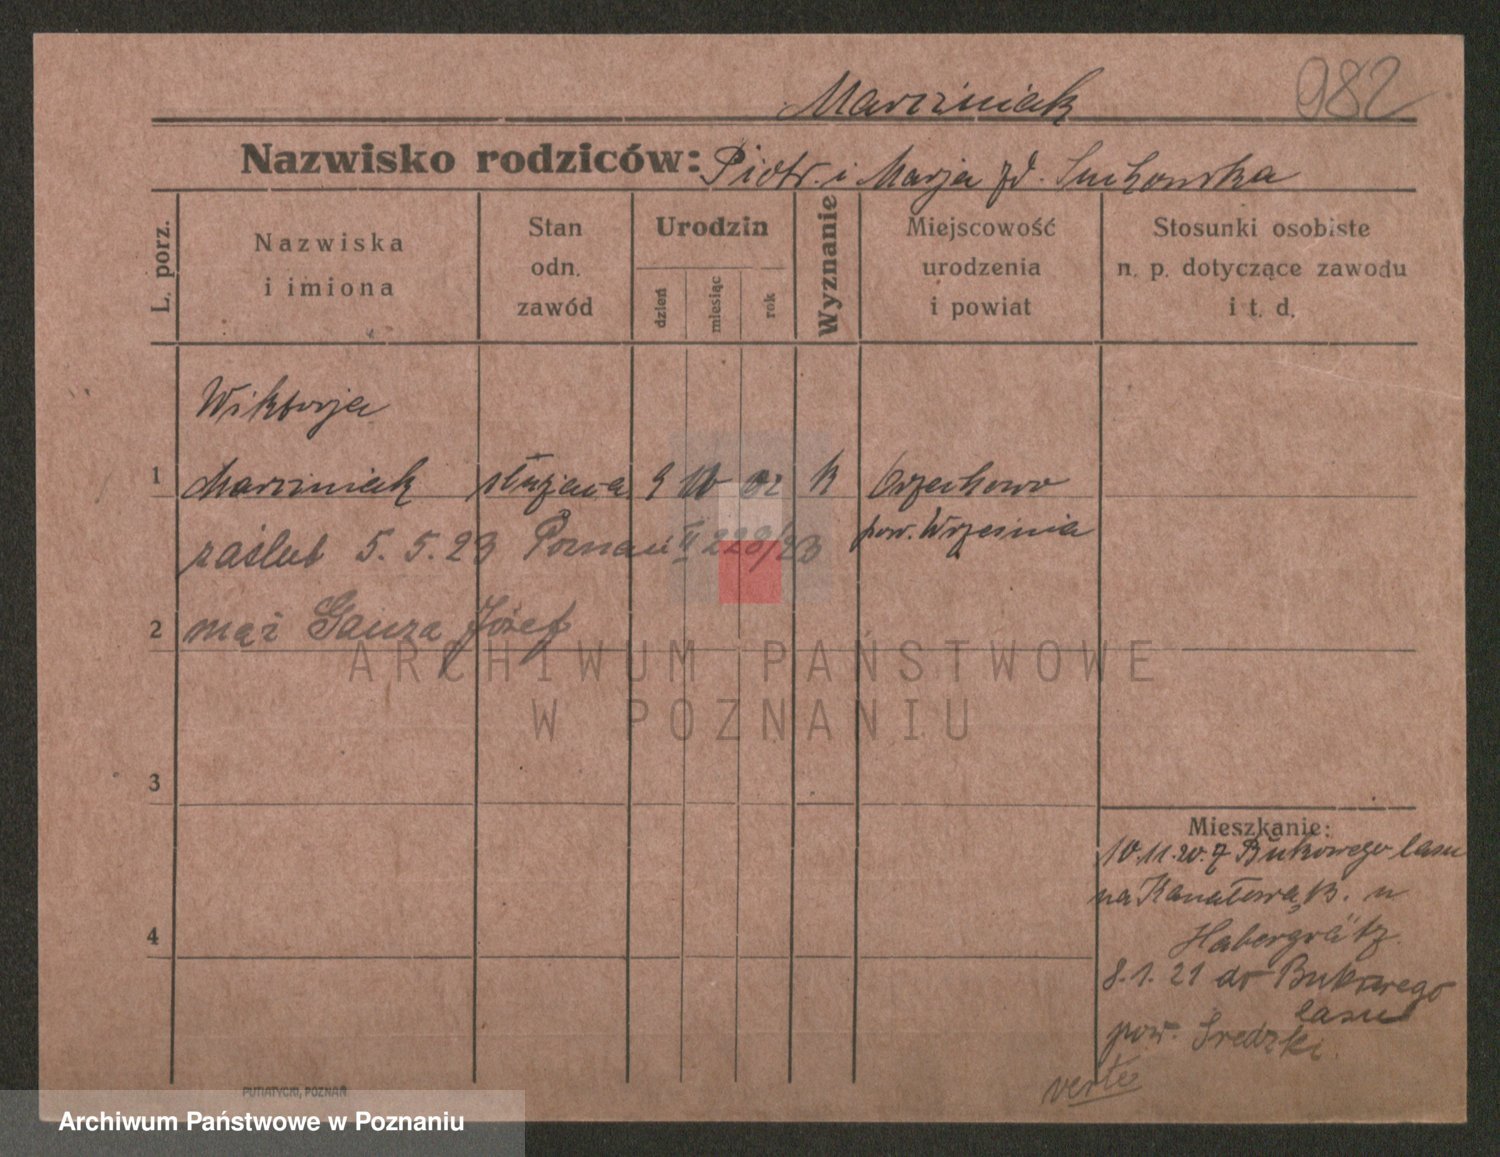 Marciniak 982
Nazwisko rodziców: Piotr i Marja zd. Suchowska
L. porz.
Nazwiska
i imiona
Stan
odn.
zawód
Urodzin
dzień
miesiąc
rok
Wyznanie
Miejscowość
urodzenia
i powiat
Stosunki osobiste
n. p. dotyczące zawodu
i t. d.
Wiktorja
1 Marciniak służąca 9 10 02 k Orzechowo
pow. Września
zaślub 5.5.23 Poznań II 228/23
2 mąż Gauza Józef
3
4
Mieszkanie:
10.11.20. z Bukowego lasu
na Kanałową 13. u
Habergrätz.
8.1.21 do Bukowego
lasu
pow. Średzki.
verte
PUTIATYCKI, POZNAŃ
ARCHIWUM PAŃSTWOWE
W POZNANIU
Archiwum Państwowe w Poznaniu